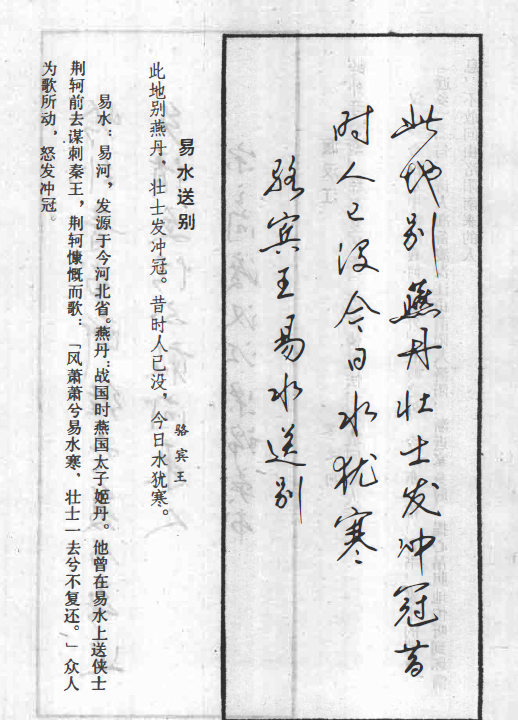 此地别燕丹壮士发冲冠昔
时人已没今日水犹寒
骆宾王易水送别
易水送别
骆宾王
此地别燕丹，壮士发冲冠。昔时人已没，今日水犹寒。
易水：易河，发源于今河北省。燕丹：战国时燕国太子姬丹。他曾在易水上送侠士
荆轲前去谋刺秦王，荆轲慷慨而歌：「风萧萧兮易水寒、壮士一去兮不复还。」众人
为歌所动，怒发冲冠。